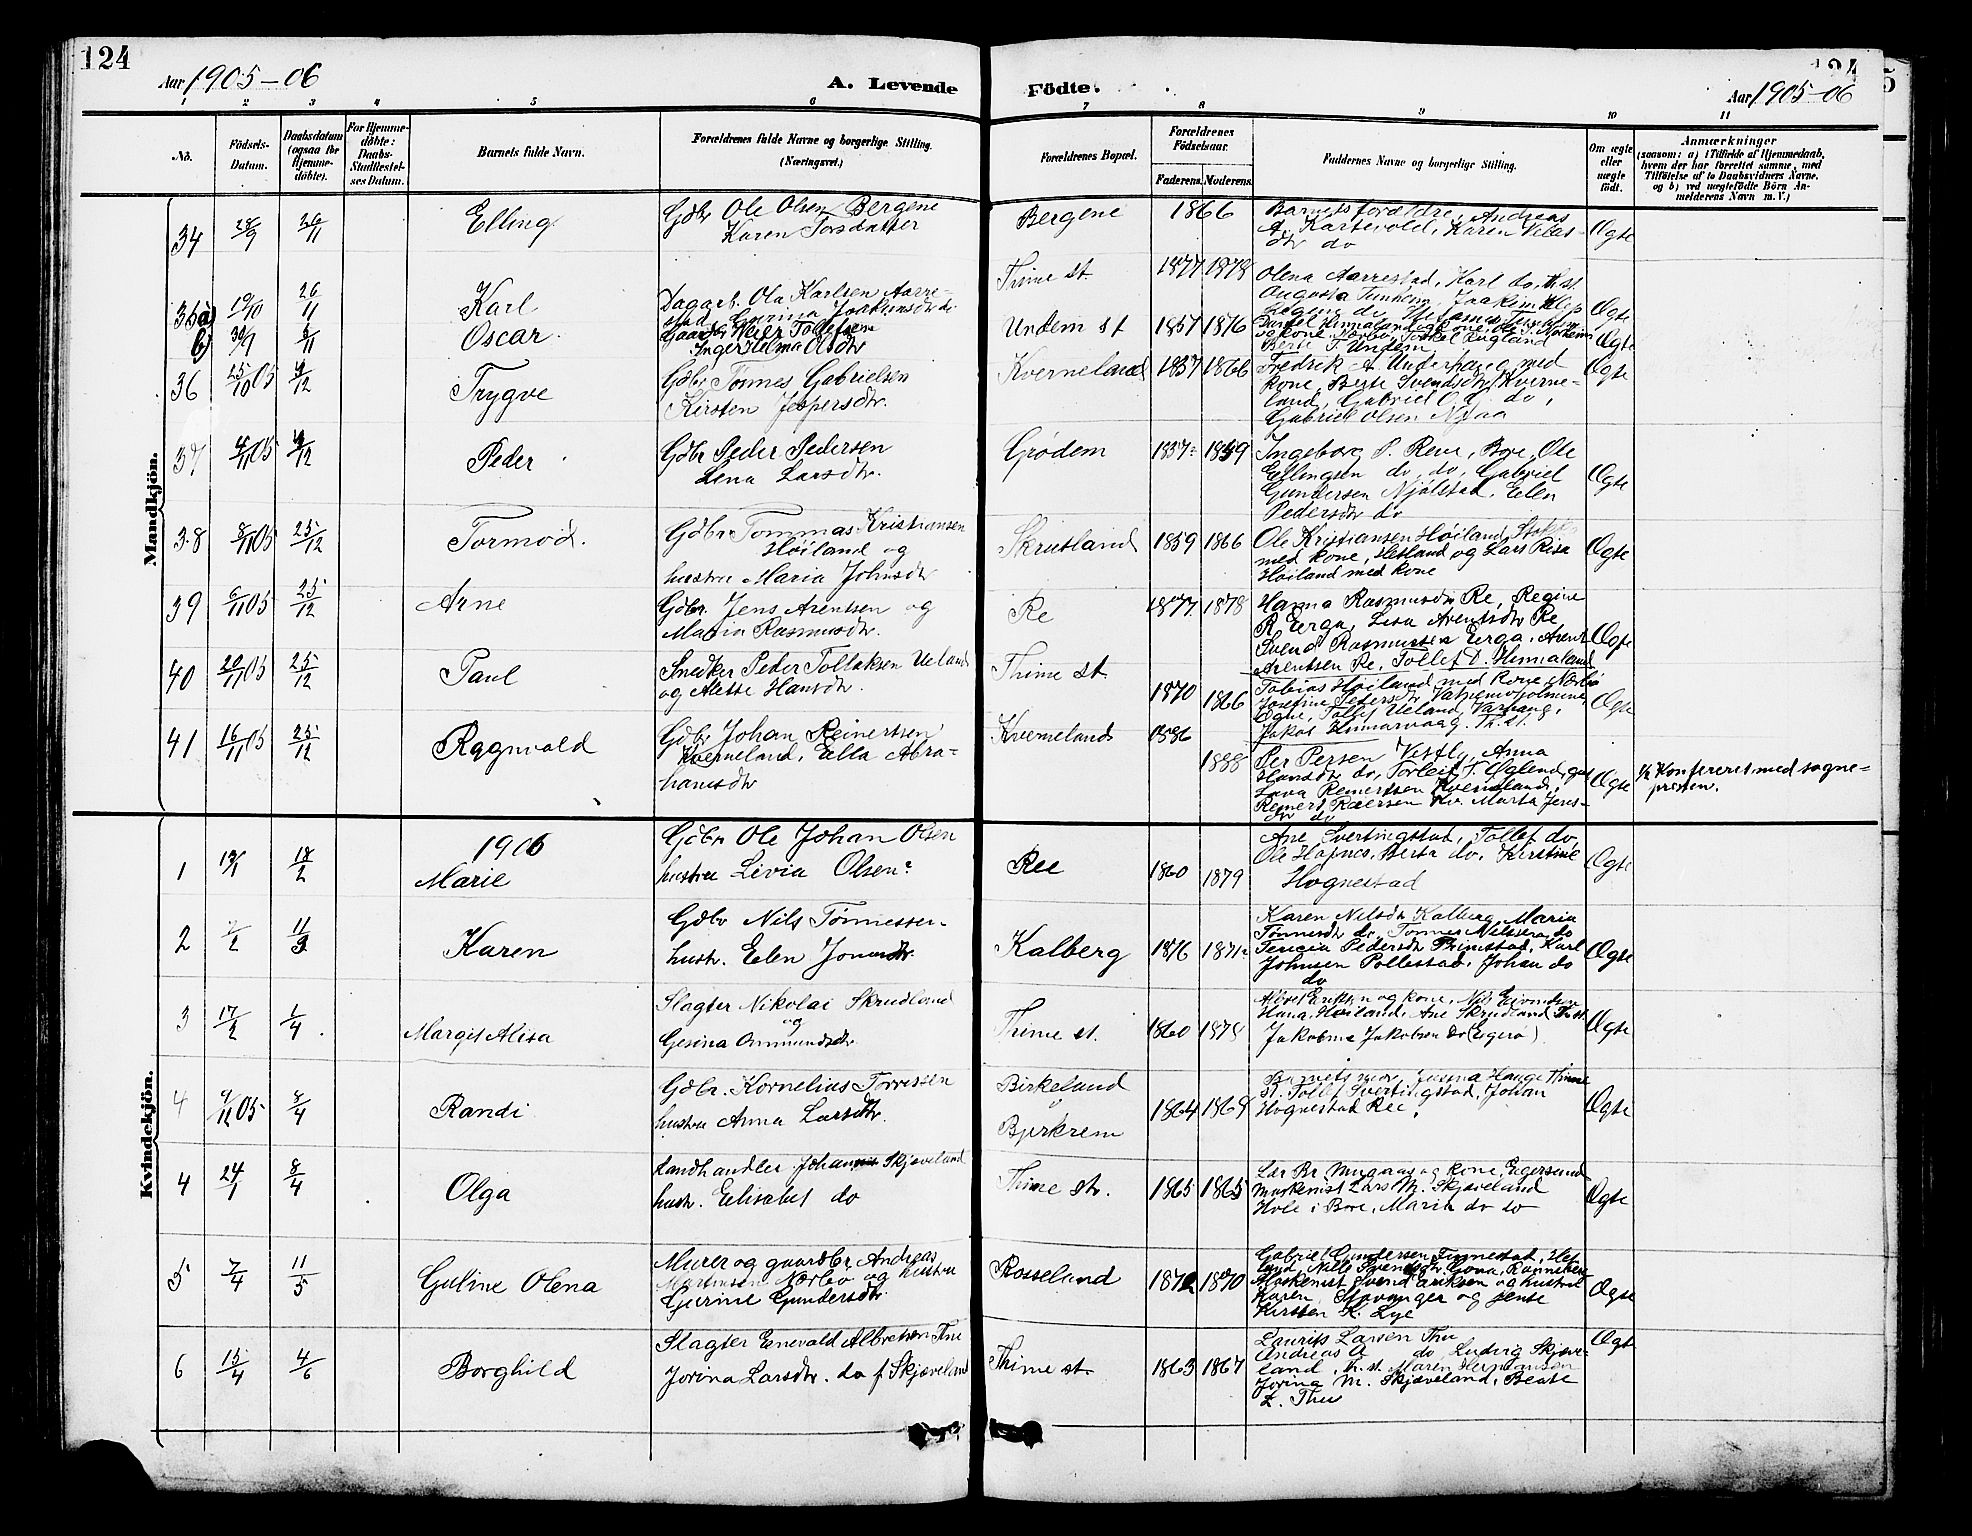 124
Aar 1905-06
A. Levende
Födte.
124
Aar 1905-06
1 2 3 4 5 6 7 8 9 10 11
No.
Födsels-
Datum.
Daabsdatum
(ogsaa for
Hjemme-
döbte).
For Hjemme-
döbte:
Daabs-
Stadfæstel-
ses Datum.
Barnets fulde Navn.
Forældrenes fulde Navne og borgerlige Stilling.
(Næringsvei.)
Forældrenes Bopæl.
Forældrenes
Födselsaar.
Faderens. Moderens.
Faddernes Navne og borgerlige Stilling.
Om ægte
eller
uægte
födt.
Anmærkninger
(saasom: a) i Tilfælde af Hjemmedaab,
hvem der har forrettet samme, med
Tilföielse af to Daabsvidners Navne,
og b) ved uægtefödte Börn An-
melderens Navn m. V.)
Mandkjön.
34 28/9 26/11 Elling
Gdbr Ole Olsen Bergene
Karen Torsdatter
Bergene 1866
Barnets forældre, Andreas
A. Kartevold, Karen
dtr do
Ægte
35a) 26/11 Karl
Dagarb. Ole Karlsen Aarre-
stad, Gurina Joakimsdtr do
Thime st. 1877 1878
Olena Aarrestad, Karl do, Th. st.
Augusta Tunheim, Joakim Klep
Ægte
b) 5/11 Oscar
Tollefsen
Inger Helma Olsdtr
Undem st 1857 1876
Berte T. Undem
Ægte
36 25/10 05 4/12 Trygve
Gdbr Tönnes Gabrielsen
Kirsten Jespersdtr.
Kverneland 1857 1866
Fredrik A. Underhaug med
kone, Berte Svendsdtr Kverne-
land, Gabriel O. G. do,
Gabriel Olsen Njaa
Ægte
37 4/11 05 4/12 Peder
Gdbr Peder Pedersen
Lena Larsdtr.
Grödem 1857 1859
Ingeborg P. Reve, Bore, Ole
Ellingsen do, do, Gabriel
Gundersen Njölstad, Elen
Pedersdtr do
Ægte
38 8/11 05 25/12 Tormod.
Gdbr Tommas Kristiansen
Höiland og
hustru Maria Johnsdtr
Skrutland 1859 1866
Ole Kristiansen Höiland
med kone, Hetland og Lars Risa
Höiland med kone
Ægte
39 6/11 05 25/12 Arne
Gdbr. Jens Arentsen og
Maria Rasmusdtr.
Re 1877 1878
Hanna Rasmusdtr Re, Regine
R. Erga, Lisa Arentsdtr Re,
Svend Rasmussen Erga, Arent
Arentsen Re, Tollef D. Hinnaland
Ægte
40 20/11 05 25/12 Paul
Snedker Peder Tollaksen Ueland
og Alette Hansdtr.
Thime st. 1870 1866
Tobias Höiland med kone Nærbö
Josefine Pedersdtr
Ogne, Tollef Ueland, Varhaug,
Jakob Hinnarvaag. Th. st.
Ægte
41 16/11 05 25/12 Ragnvald
Gdbr Johan Reinertsen
Kverneland, Ella Abra-
hamsdtr
Kverneland 1886 1888
Per Persen Vestly, Anna
Hansdtr do, Torleif T. Öglend,
Lava Reinertsen Kverneland,
Reinert Kv. Marta Jens-
dtr do
Ægte
Konfereret med sogne-
presten.
Kvindekjön.
1906
1 18/2 Marie
Gdbr Ole Johan Olsen
hustru Livia Olsen
Ree 1860 1879
Ane Svertingstad, Tollef do,
Ole Hognes, Berta do, Kirstine
Hognestad
Ægte
2 11/3 Karen
Gdbr Nils Tönnessen
hustr. Elen Jonasdtr.
Kalberg 1876 1871
Karen Nilsdtr Kalberg, Maria
Tönnesdtr do, Tönnes Nilssen do
Tericia Pedersdtr Thimestad, Karl
Johnsen Pollestad, Johan do
do
Ægte
3 17/2 1/4 Margit Alisa
Slagter Nikolai Skrudland
og
Gesina Ommundsdtr
Thime st. 1860 1878
og kone, Nils Eivindsen
Höiland, Ane Skrudland Th. st.
Jakobine Jakobsen do (Egerö)
Ægte
4 05 8/4 Randi
Gdbr. Kornelius Torrissen
hustru Anna Larsdtr.
Birkeland
Bjerkrem
1864 1869
Barnets mor, Hauge Thime
st. Tollef Svertingstad, Johan
Hognestad Ree.
Ægte
4 24/1 8/4 Olga
Landhandler Skjæveland
hustr. Elisabet do
Thime st. 1865 1865
og kone, Egersund
Maskenist Lars M. Skjæveland
Hole i Bore, Marih do do
Ægte
5 7/4 11/5 Guline Olena
Murer og gaardbr. Andreas
Mortensen Nærbö og hustru
Gurine Gundersdtr.
Rosseland 1872 1870
Gabriel Gundersen Tinnestad, Het-
land, Nille Svendsdtr
Maskenist Svend Eriksen og hustru
Karen, Stavanger og jente
Kirsten K. Lye
Ægte
6 15/4 4/6 Borghild
Slagter Enevald Albretsen Thu
Jorina Larsdtr. do f. Skjæveland
Thime st. 1863 1867
Laurits Larsen Thu
Andreas A do, Ludvig Skjæve-
land, Th. st. Maren Hermansen
Jorina M. Skjæveland, Beate
L. Thu
Ægte